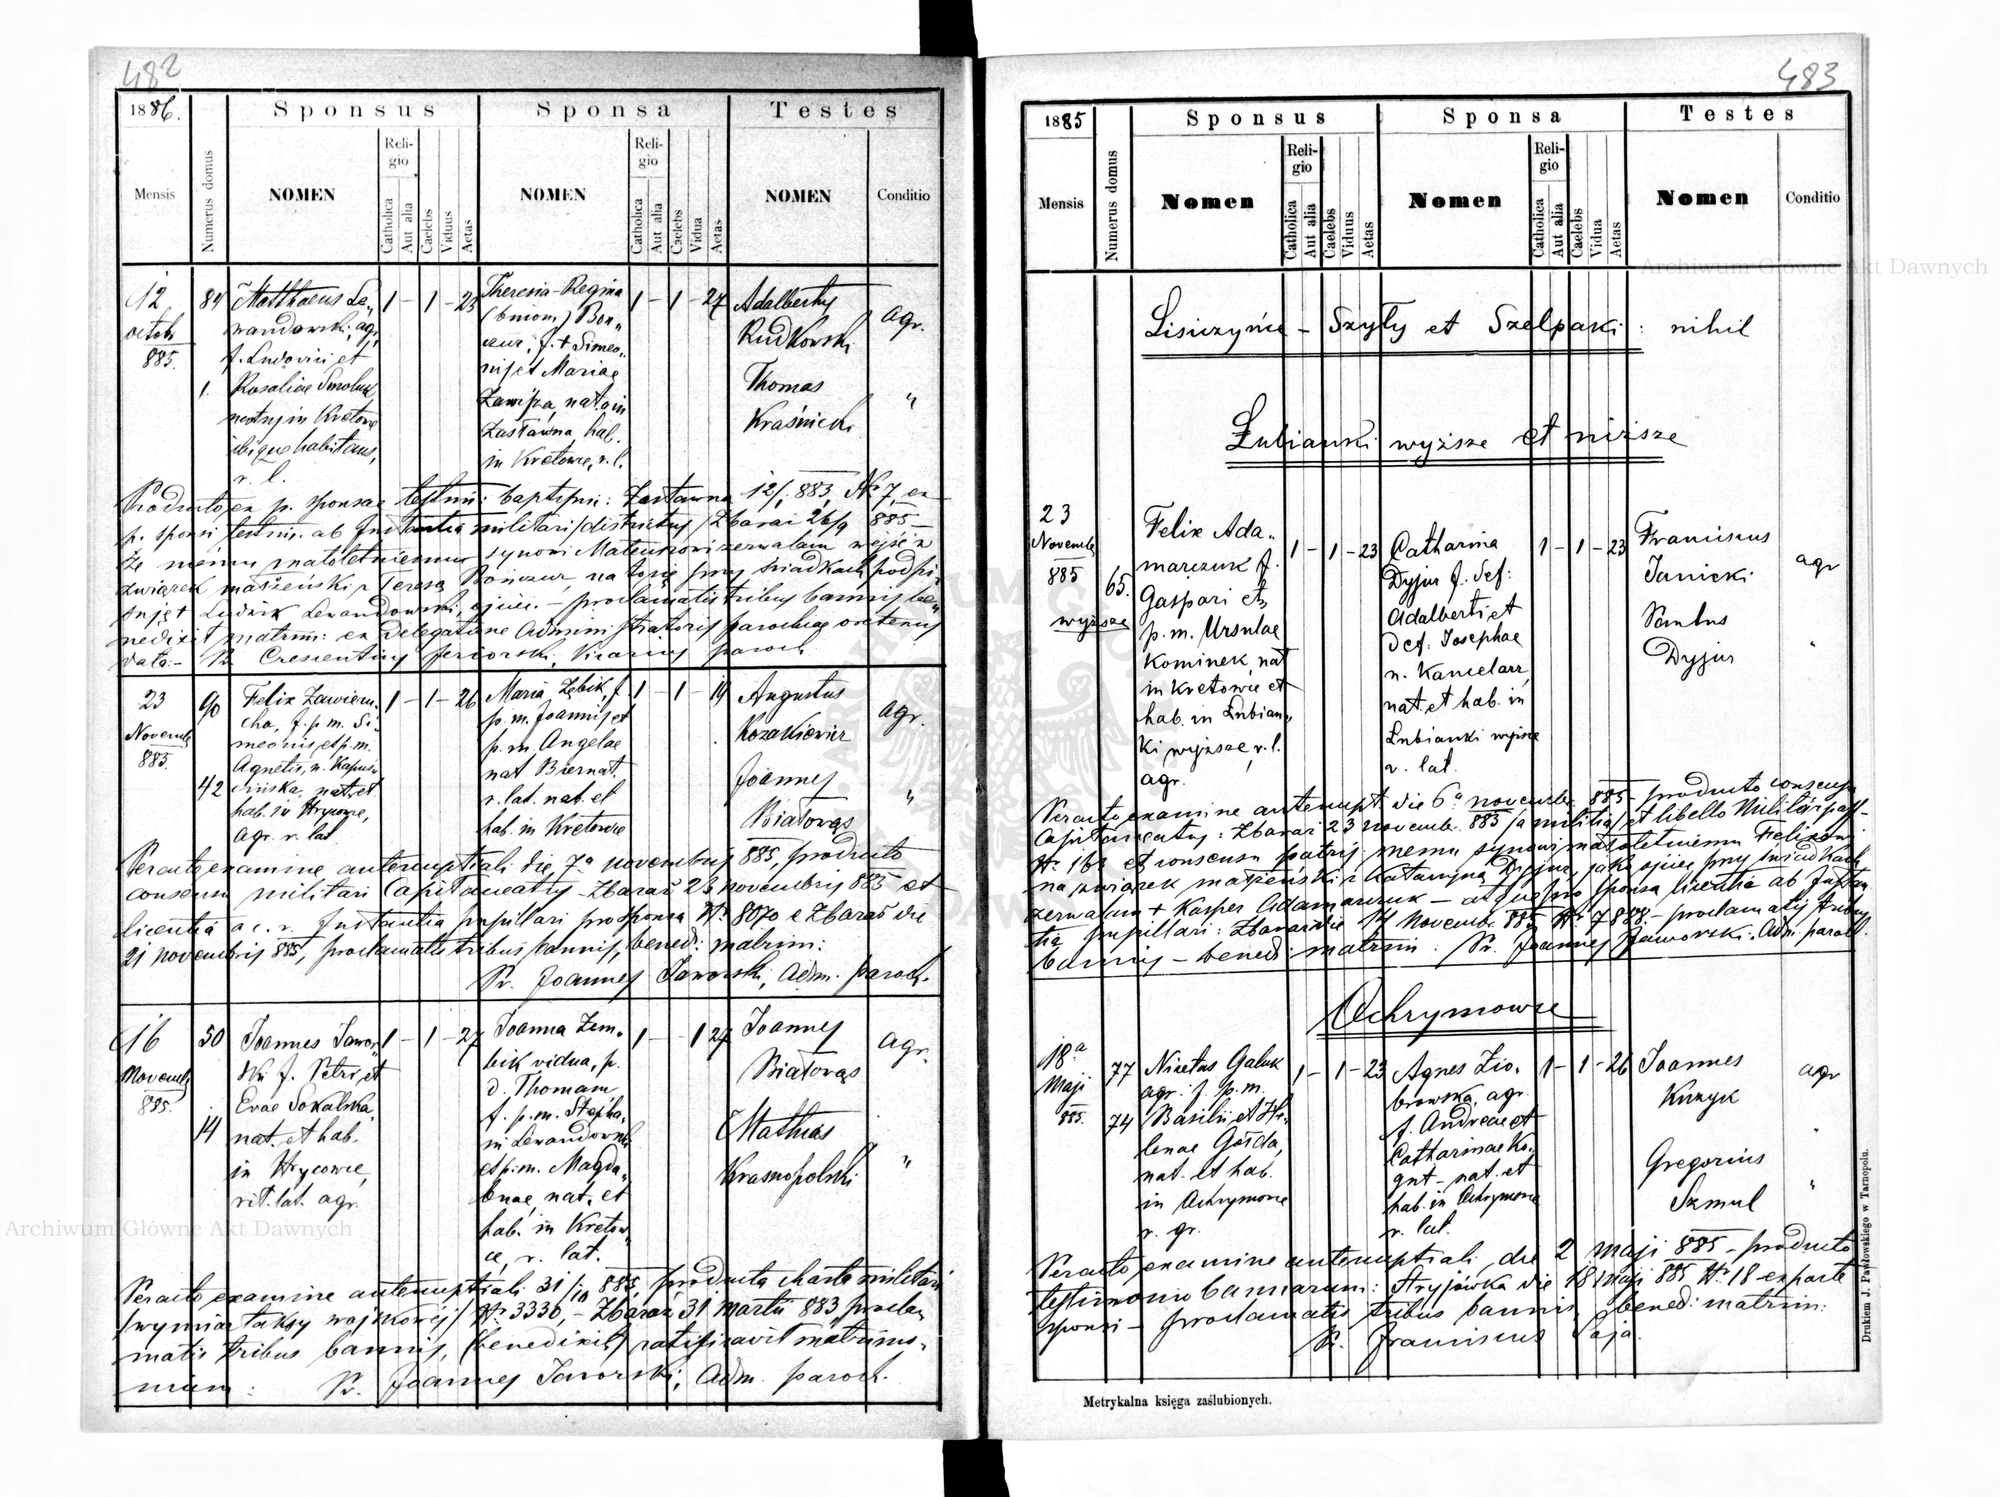 482
1886.
Sponsus
Sponsa
Testes
Mensis
Numerus domus
NOMEN
Religio
Catholica
Aut alia
Caelebs
Viduus
Aetas
NOMEN
Religio
Catholica
Aut alia
Caelebs
Vidua
Aetas
NOMEN
Conditio
12 octob 885.
84
1.
Matthaeus Le„
wandowski, agr,
f. Ludovici et
Rosaliae
natus in Kretowce
ibique habitans,
r. l.
1 – 1 – 23
Theresia-Regina
(binom.) Boń„
czur, f. + Simeo„
nis et Mariae
nata in
Zastawna, hab.
in Kretowce, r. l.
1 – 1 – 27
Adalbertus
Rudkowski
Thomas
Kraśnicki
agr.
„
Producto ex p. sponsae testim: baptism: Zastawna 12/, 883, No 7, ex
p. sponsi testim. ab Instantia militari districtus Zbaraż 26/9 885 –
że mému małoletniemu synowi Mateuszowi zezwalam wejść w
związek małżeński z Teresą Bończur, na to się przy świadkach podpi„
suję Ludwik Lewandowski, ojciec. – proclamatis tribus bannis bene„
nedixit matrim: ex delegatione Administratoris parochiae oretenus
data – Pr. Crescentius Jeziorski, Vicarius paroch
23 Novemb 885.
90
42
Felix Zawieru„
cha, f. p. m. Si„
meonis, et p. m.
Agnetis, n. Kapus„
cińska, nat. et
hab. in Hrycowce,
agr. r. lat
1 – 1 – 26
Maria Zębik, f
p. m. Joannis et
p. m. Angelae
nat Biernat,
r. lat. nat. et
hab. in Kretowce
1 – 1 – 19
Augustus
Kozakiewicz
Joannes
Białowąs
agr.
„
Peracto examine antenuptiali die 7a novembris 885, producto
consensu militari Capitaneatus Zbaraż 23 novembris 885 et
licentia a c. r. Instantia pupillari pro sponsa No 8070 e Zbaraż die
21 novembris 885, proclamatis tribus bannis, bened: matrim:
Pr. Joannes Jaworski, Adm. paroch.
16 Novemb 885.
50
14
Joannes Jawor„
ski f. Petri et
Evae Sokalska,
nat. et hab.
in Hrycowce,
rit. lat. agr.
1 – 1 – 27
Joanna Zem„
bik vidua, p.
d. Thomam,
f. p. m. Stepha„
ni Lewandowski
et p. m. Magda„
lenae, nat. et
hab. in Kretow„
ce, r. lat.
1 – 1 29
Joannes
Białowąs
Mathias
Krasnopolski
agr.
„
Peracto examine antenuptiali 31/10 885, producta charta militari
/wymiar taksy wojskowéj/ No 3330, – Zbaraż 31 Martii 883, procla„
matis tribus bannis, (benedixit) ratificavit matrimo„
nium: Pr. Joannes Jaworski, Adm. paroch.
483
1885
Sponsus
Sponsa
Testes
Mensis
Numerus domus
Nomen
Religio
Catholica
Aut alia
Caelebs
Viduus
Aetas
Nomen
Religio
Catholica
Aut alia
Caelebs
Vidua
Aetas
Nomen
Conditio
Lisiczyńce – Szyły et Szelpaki: nihil
Łubianki wyższe et niższe
23 Novemb 885
65.
wyższe
Felix Ada„
marczuk f.
Gaspari et
p. m. Ursulae
Kominek, nat
in Kretowce et
hab. in Łubian„
ki wyższe, r. l.
agr.
1 – 1 – 23
Catharina
Dyjur f. def:
Adalberti et
def. Josephae
n. Kancelarz,
nat et hab. in
Łubianki wyższe
r. lat.
1 – 1 – 23
Franciscus
Janicki
Paulus
Dyjur
agr
„
Peracto examine antenupt. die 6a novembr. 885 – producto consensu
Capitaneatus: Zbaraż 23 novembr. 883 /a militia/ et libello Militärpass–
No 163 et consensu patris: memu synowi małoletniemu Felixowi
na związek małżeński z Katarzyną Dyjur, jako ojciec przy świadkach
zezwalam + Kasper Adamarczuk – atque pro sponsa licentia ab Instan„
tia pupillari: Zbaraż die 14 Novembr. 885 No 7888. – proclamatis tribus
bannis – bened: matrim: Pr. Joannes Jaworski. Adm. paroch.
Ochrymowce
18a Maji 885.
77
74
Nicetas Galuk
agr. f. p. m.
Basilii et He„
lenae Gojda,
nat. et hab.
in Ochrymowce
r. gr.
1 – 1 – 23
Agnes Zio„
browska, agr.
f. Andreae et
Catharinae Ko„
gut – nat. et
hab. in Ochrymowce
r. lat.
1 – 1 – 26
Joannes
Kuzyk
Gregorius
Szmul
agr
„
Peracto examine antenuptiali die 2 Maji 885 – producto
testimonio bannorum: Hryjówka die 18 maji 885 No 18 ex parte
sponsi – proclamatis tribus bannis, bened: matrim:
Pr. Franciscus Saja.
Metrykalna księga zaślubionych.
Drukiem J. Pawłowskiego w Tarnopolu.
Archiwum Główne Akt Dawnych
Archiwum Główne Akt Dawnych